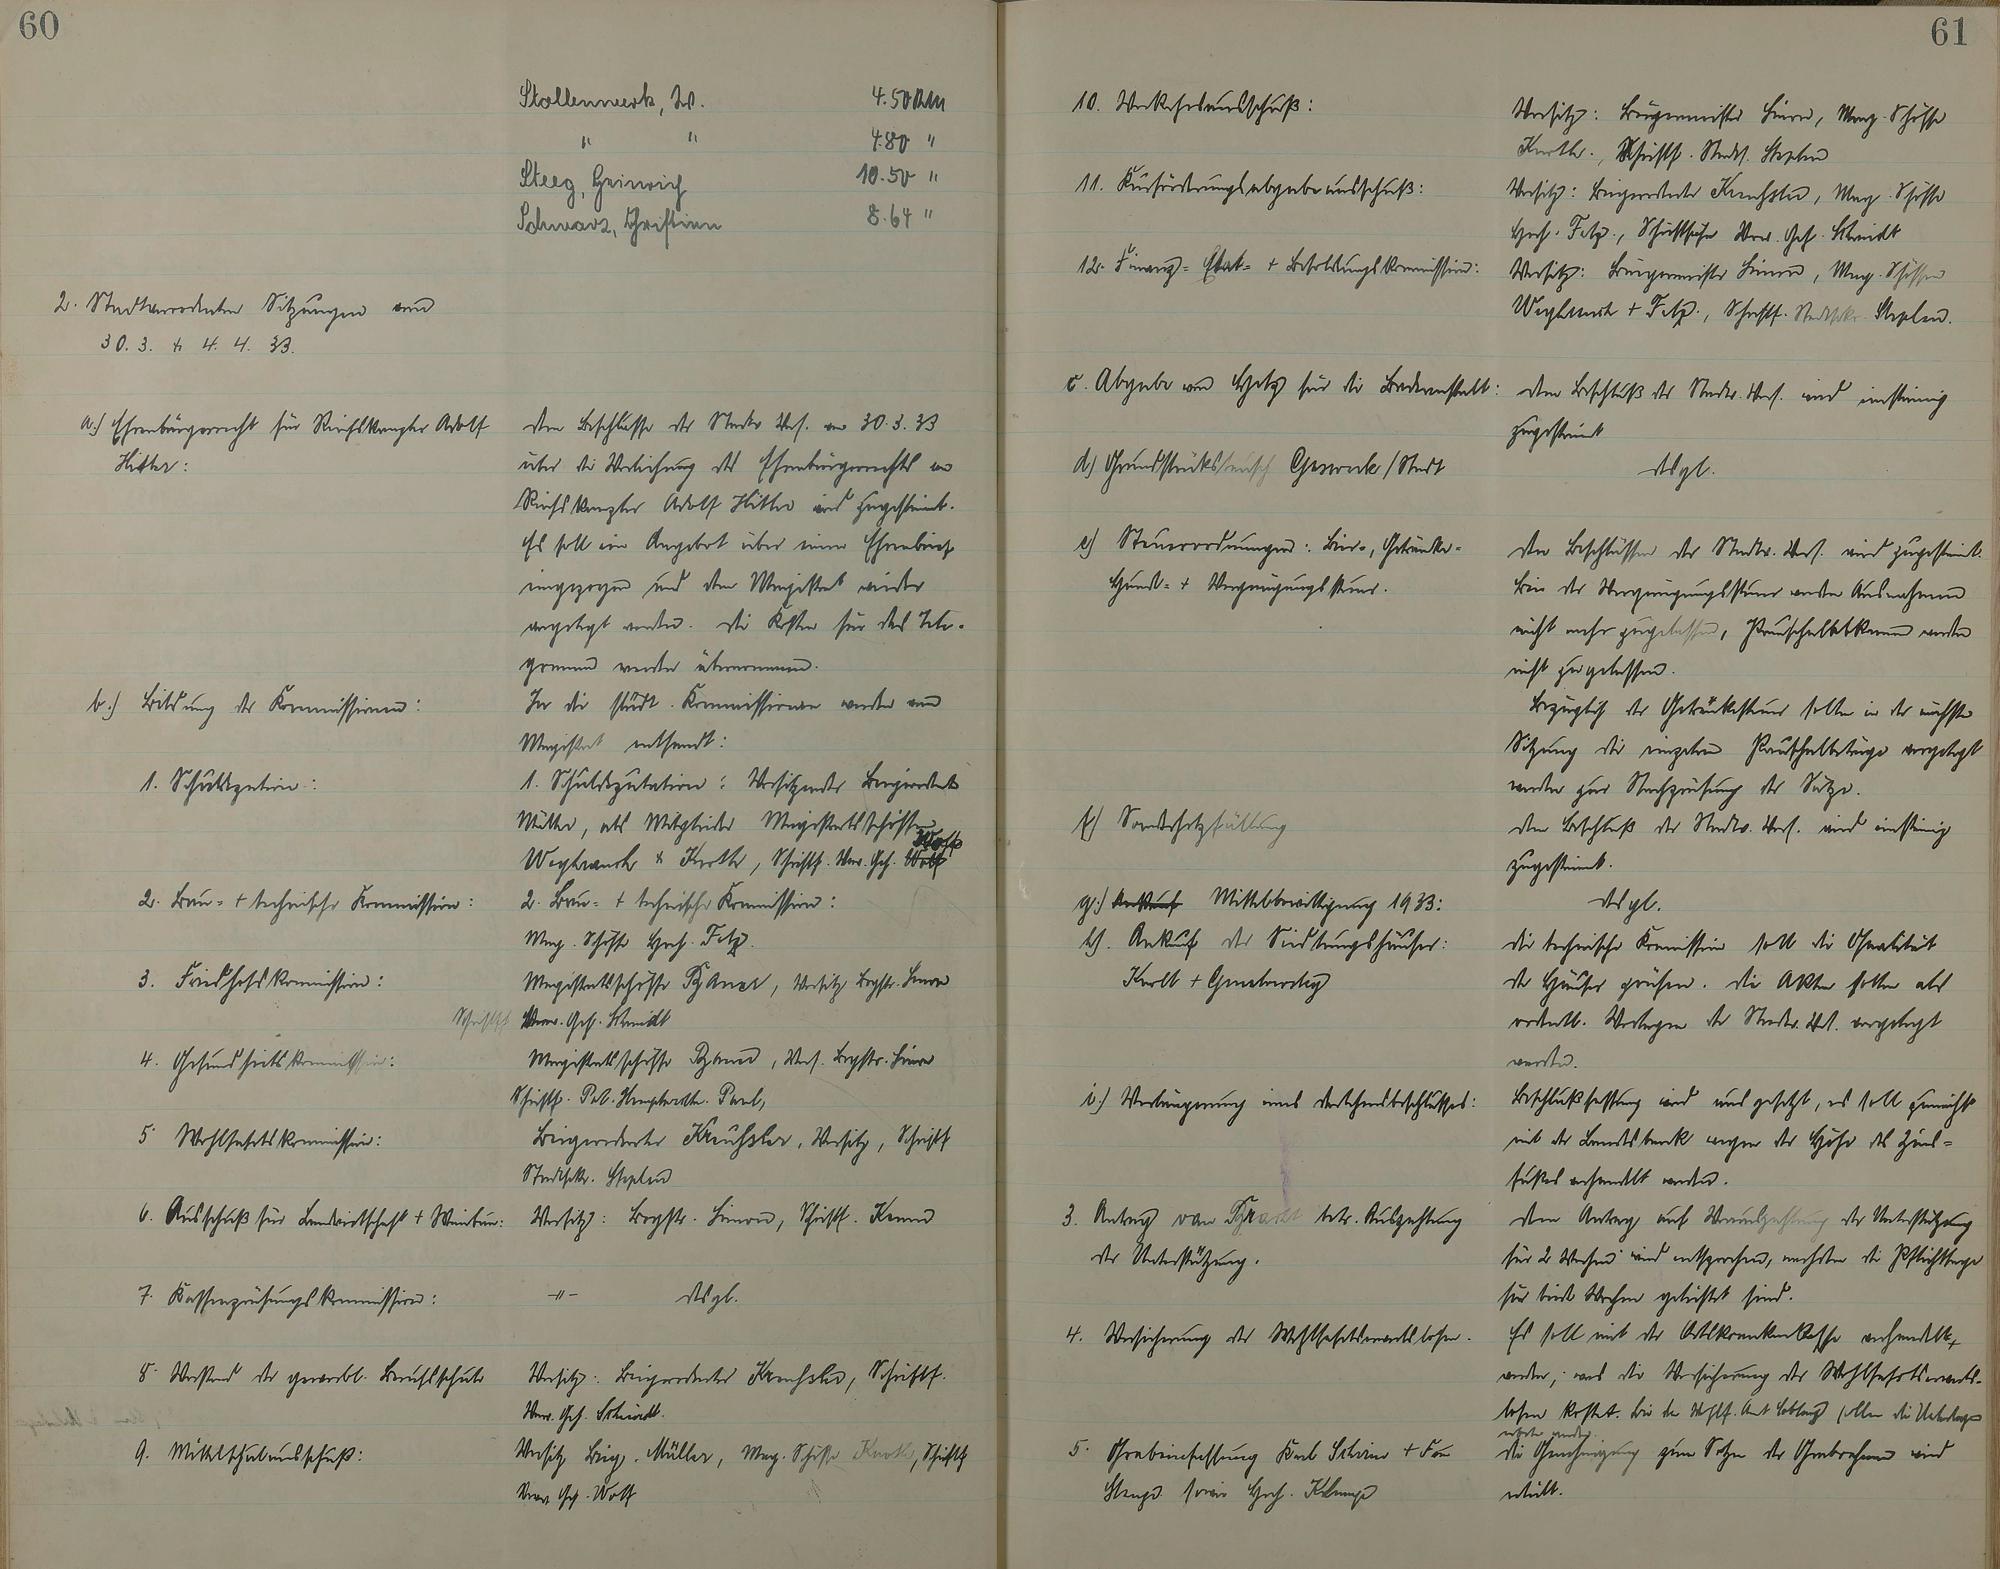 60
Stollenwerk, W. 4.50 RM
" " 4.80 "
Steeg, Heinrich 10.50 "
Schwarz, Christian 8.64 "
2. Stadtverordneten Sitzungen vom
30. 3. + 4. 4. 33.
a.) Ehrenbürgerrecht für Reichskanzler Adolf
Hitler:
Dem Beschlusse der Stadtv. Vers. vom 30.3.33
über die Verleihung des Ehrenbürgerrechts an
Reichskanzler Adolf Hitler wird zugestimmt.
Es soll ein Angebot über einen Ehrenbrief
eingezogen und dem Magistrat wieder
vorgelegt werden. Die Kosten für das Tele-
gramm werden übernommen.
b.) Bildung der Kommissionen:
In die städt. Kommissionen werden vom
Magistrat entsandt:
1. Schuldeputation:
1. Schuldeputation: Vorsitzender Beigeordneter
Müller, als Mitglieder Magistratsschöffen
Wolff
& Kurth, Schriftf. Verw. Geh. Wolf
2. Bau- + technische Kommission:
2. Bau- + technische Kommission:
Mag. Schöffe Hch. Fetz.
3. Friedhofskommission:
Magistratsschöffe, Vorsitz Bgstr.
Schriftf. Verw. Geh. Schmidt
4. Gesundheitskommission:
Magistratsschöffe, Vors. Bgstr.
Schriftf. Pol. Hauptwachtm. Paul,
5. Wohlfahrtskommission:
Beigeordneter, Vorsitz, Schriftf.
Stadtsekr. Stephan
6. Ausschuß für Landwirtschaft + Weinbau:
Vorsitz: Bgstr., Schriftf.
7. Kassenprüfungskommission:
-"- desgl.
8. Vorstand der gewerbl. Berufsschule
Vorsitz: Beigeordneter, Schriftf.
Verw. Geh. Schmidt.
9. Mittelschulausschuß:
Vorsitz Beig. Müller, Mag. Schöffe Kurth, Schriftf.
Verw. Geh. Wolf
61
10. Verkehrsausschuß:
Vorsitz: Bürgermeister, Mag. Schöffe
Kurth., Schriftf. Stadts. Stephan
11. Kurförderungsabgabeausschuß:
Vorsitz: Beigeordneter, Mag. Schöffe
Hch. Fetz., Schriftführer Verw. Geh. Schmidt
12. Finanz- Etat- + Besoldungskommission:
Vorsitz: Bürgermeister, Mag. Schöffen
+ Fetz., Schriftf. Stadtsekr. Stephan.
c. Abgabe von Holz für die Badeanstalt:
Dem Beschluß der Stadtv. Vers. wird einstimmig
zugestimmt
d) Grundstückstausch Gaswerk/Stadt
desgl.
e) Steuerordnungen: Bier-, Getränke-
Hunde- + Vergnügungssteuer.
Den Beschlüssen der Stadtv. Vers. wird zugestimmt.
Bei der Vergnügungssteuer werden Ausnahmen
nicht mehr zugelassen, werden
nicht zugelassen.
Bezüglich der Getränkesteuer sollen in der nächsten
Sitzung die einzelnen Pauschalbeträge vorgelegt
werden zur Nachprüfung der Sätze.
f)
Dem Beschluß der Stadtv. Vers. wird einstimmig
zugestimmt.
g.) Ankauf Mittelbewilligung 1933:
desgl.
h). Ankauf der Siedlungshäuser:
Korb +
Die technische Kommission soll die Qualität
der Häuser prüfen. Die Akten sollen als
ordentl. Vorlagen der Stadtv. Vers. vorgelegt
werden.
i.) Verlängerung eines Darlehensbeschlusses:
Beschlußfassung wird ausgesetzt, es soll zunächst
mit der Landesbank wegen der Höhe des Zins-
fußes verhandelt werden.
3. Antrag von betr. Auszahlung
der Unterstützung.
Dem Antrag auf Vorauszahlung der Unterstützung
für 2 Wochen wird entsprochen, nachdem die Pflichttage
für beide Wochen geleistet sind.
4. Versicherung der Wohlfahrtserwerbslosen.
Es soll mit der Ortskrankenkasse verhandelt
werden, was die Versicherung der Wohlfahrtserwerbs-
losen kostet. Bei der Wohlf. Amt Coblenz sollen die Unterlagen
werden.
5. Grabeinfassung Karl + Frau
sowie Hch.
Die Genehmigung zum Setzen der Grabrahmen wird
erteilt.